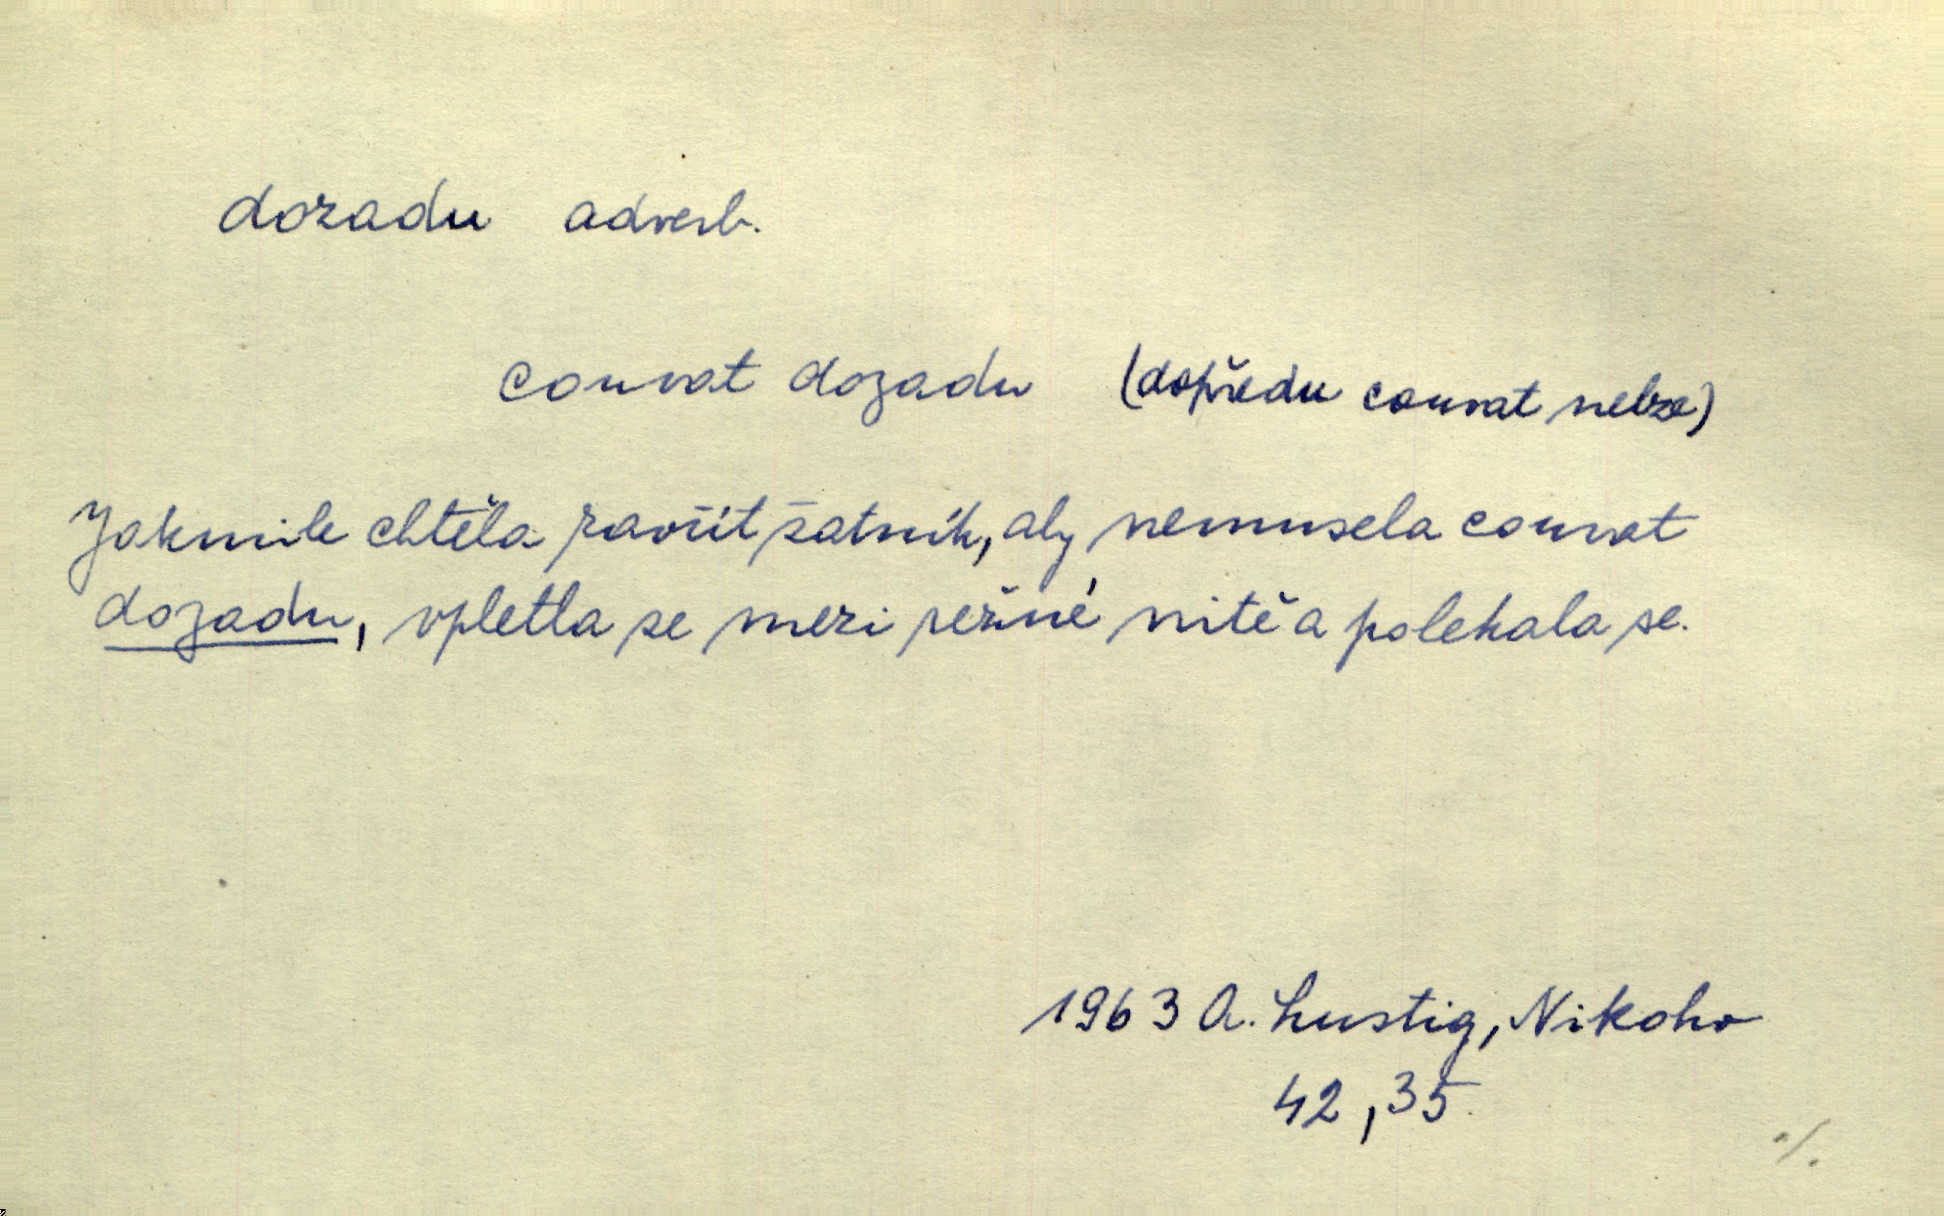 dozadu adverb.
couvat dozadu (dopředu couvat nelze)
Jakmile chtěla zavřít šatník, aby nemusela couvat
dozadu, vpletla se mezi režné nitě a polekala se.
1963 A. Lustig, Nikoho
42, 35
./.